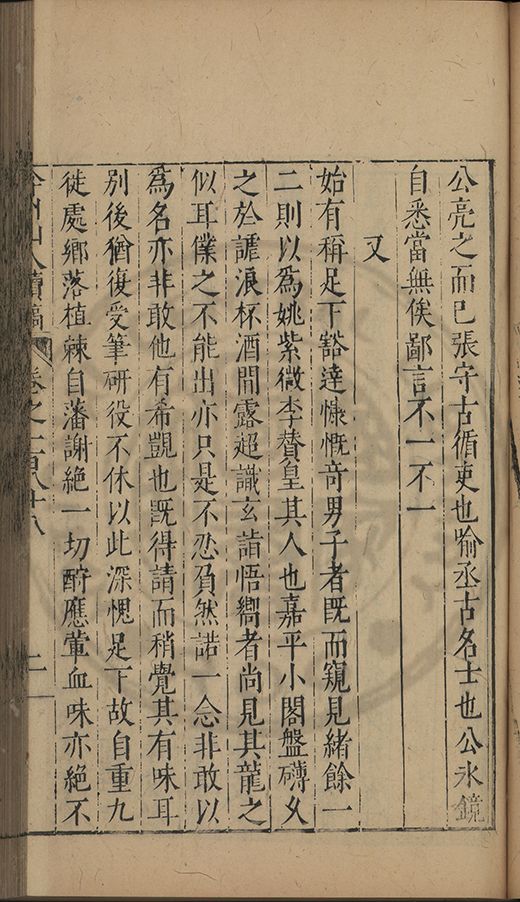 公亮之而已張守古循吏也喻丞古名士也公水鏡
自悉當無俟鄙言不一不一
又
始有稱足下豁達慷慨奇男子者既而窺見緒餘一
二則以爲姚紫微李贊皇其人也嘉平小閣盤礴久
之於謔浪杯酒間露超識玄詣悟嚮者尚見其龍之
似耳僕之不能出亦只是不忍負然諾一念非敢以
爲名亦非敢他有希覬也既得請而稍覺其有味耳
別後猶復受筆研役不休以此深愧足下故自重九
徙處鄉落植棘自藩謝絕一切酧應葷血味亦絕不
弇州山人續稿 卷之一百八十八 二